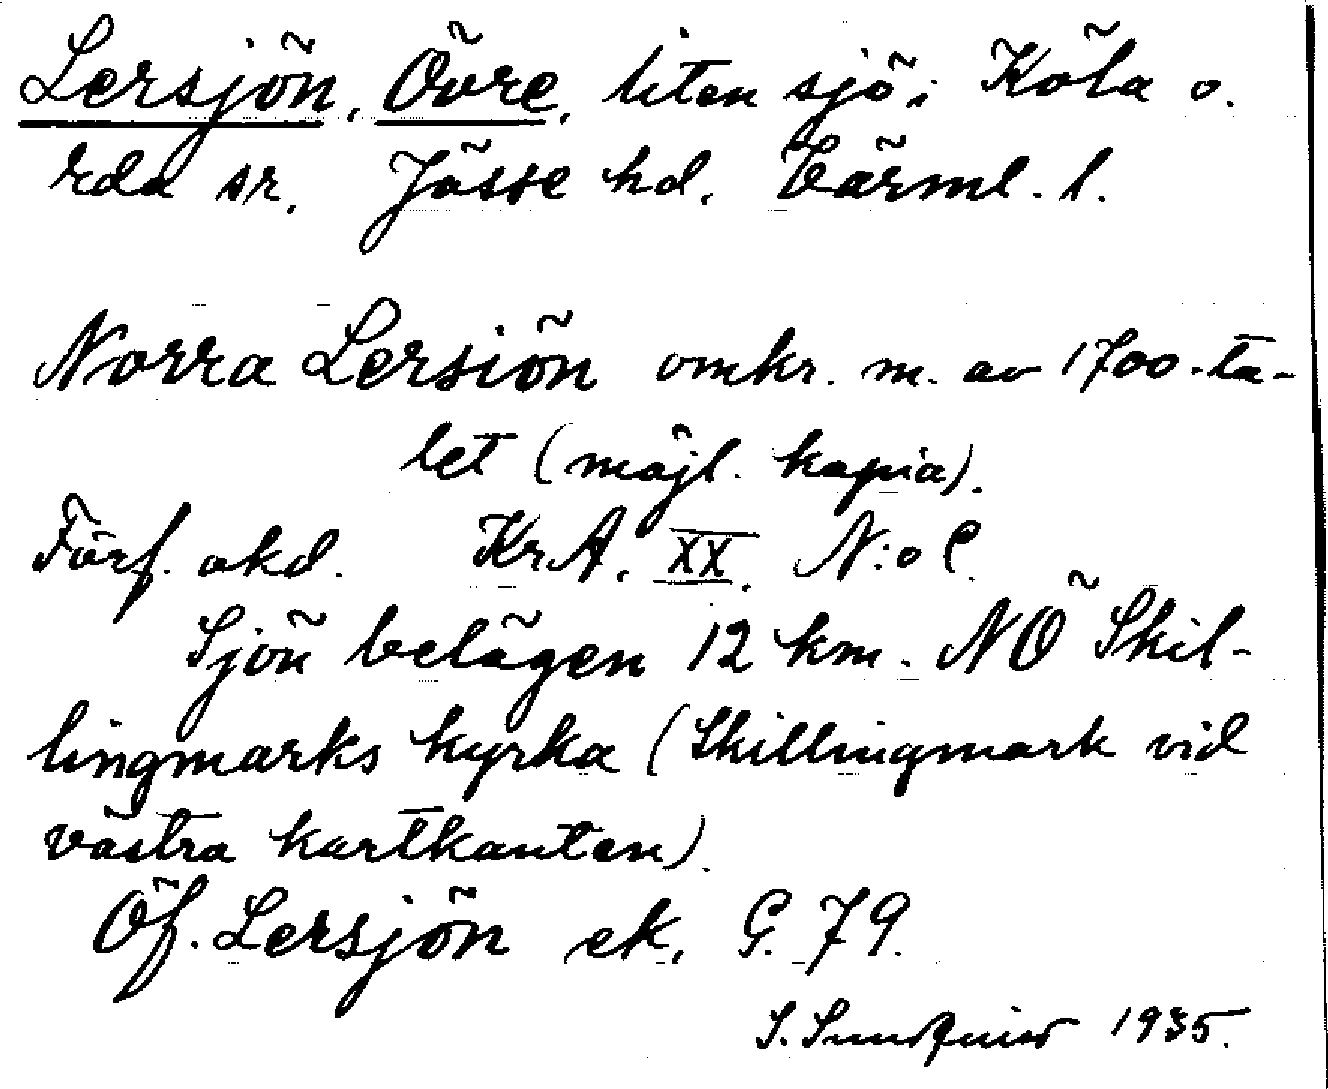 Lersjön, Övre, liten sjö i Köla o.
rda sr. Jösse hd. Värml. l.
Norra Lersiön omkr. m. av 1700-ta-
let (möjl. kopia).
Förf. okd. KrA. XX. N:o C.
Sjön belägen 12 km. NÖ Skil-
lingmarks kyrka (Skillingmark vid
västra kartkanten).
Öf. Lersjön ek. G. 79.
S. Sundqvist 1935.